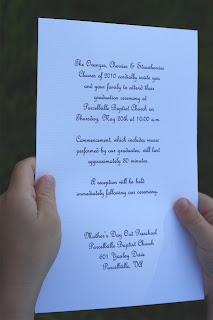 The Oranges, Cherries & Strawberries
Classes of 2010 cordially invite you
and your family to attend their
graduation ceremony at
Purcellville Baptist Church on
Thursday, May 20th at 10:00 a.m.
Commencement, which includes music
performed by our graduates, will last
approximately 30 minutes.
A reception will be held
immediately following our ceremony.
Mother's Day Out Preschool
Purcellville Baptist Church
601 Yaxley Drive
Purcellville, VA